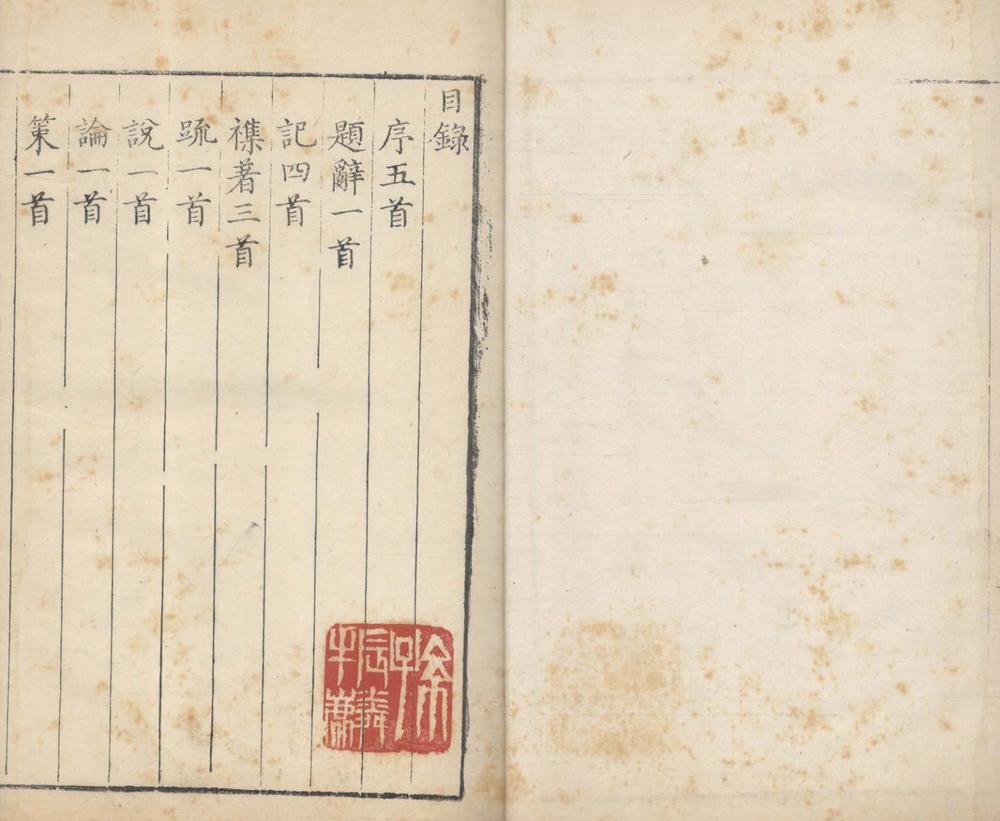 目錄
序五首
題辭一首
記四首
襍著三首
䟽一首
說一首
論一首
策一首